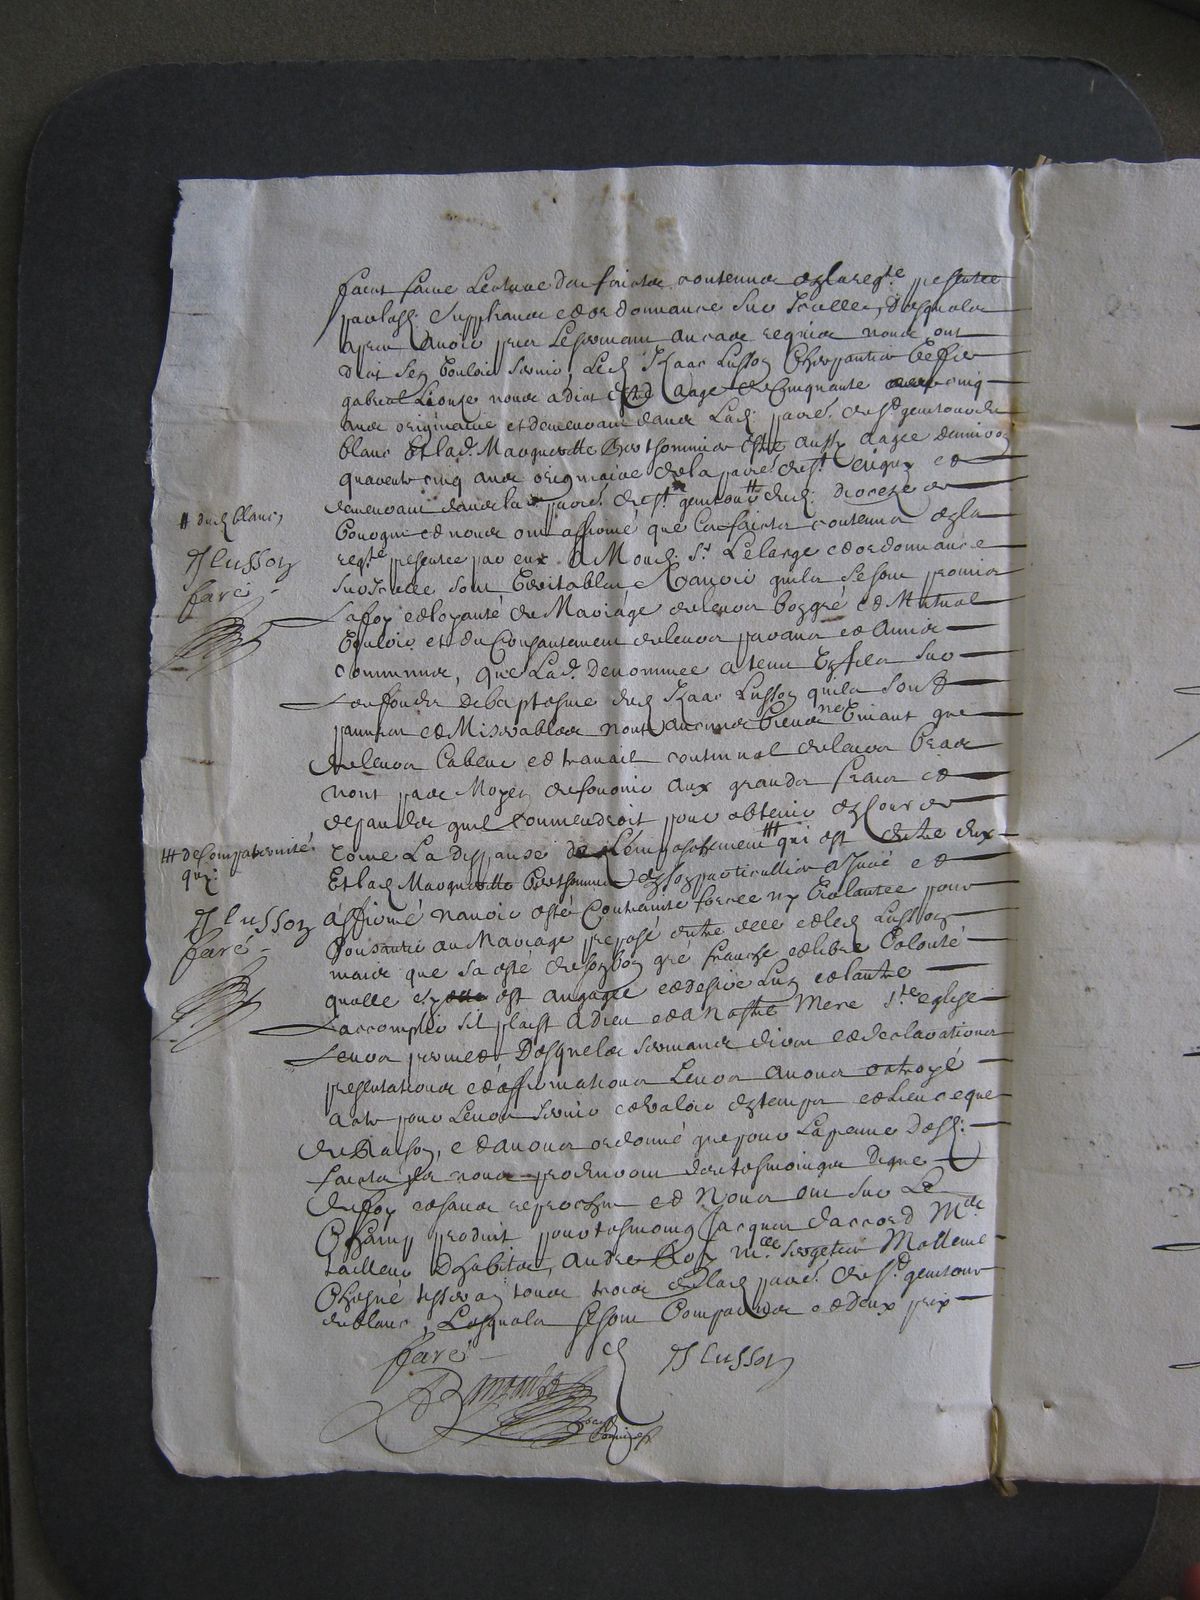 faict faire Lecture des faictz contenuz en la reqte presentée
par lesd. supplians et ordonnance sur Icelle, desquelz
apres avoir pris Le serment au cas requis nous ont
dict Sen Vouloir servir, Led. Izaac Lusson Charpantier
gabriel nous a dict estre aagé de Cinquante cinq
ans originaire et demeurant dans Lad. parr. de st. genitour du
blanc Et lad. Margueritte Berthommier estre aussy aagée denviron
quarente cinq ans originaire de la parr. de st. et
demeurant dans la parr. de st. genitour # dud. diocese de
bourges et nous ont affirmé que Les faictz contenuz en la
reqte presentée par eux A Mond. sr. Lelarge et ordonnance
sur Icelle sont Veritables scavoir quilz se sont promis
La foy et loyauté de Mariage de leurs bon gré et Mutuel
Vouloir et du Consantement de leurs parans et Amis
communs, que Lad. denommée a tenu un filz sur
Les fondz de baptesme dud. Izaac Lusson quilz sont
pauvres et Miserables nont aucuns biens ne Vivant que
de leur labeur et travail continuel de leurs bras
nont pas Moyen de fournir aux grandz fraiz et
despandz quil conviendroit pour obtenir en Cour de
rome La dispanse de Lempeschement ### qui est entre eux
Et lad. Margueritte Berthommier en son particullier a Juré et
affirmé navoir esté Contrainte forcée ny Violantée pour
Consantir au Mariage proposé entre elle et led. Lusson
mais que sa esté de son bon gré franche et libre Volonté
quelle sy est angagée et desire Lun et lautre
Laccomplir sil plaist a dieu et a Nostre Mere ste eglise
Leur permet Desquelz sermans dires et declarations
presentations et affirmations Leurs avons octroyé
acte pour Leurs servir et valoir en temps et Lieu ce que
de Raison, et avons ordonné que pour La preuve desd.
faictz Ilz nous produiront des tesmoings digne
de foy et sans reproches et Nous ont sur Le
Champ produit pour tesmoing Jacques dacord Me
tailleur Dhabitz, André Roy me sergetier Mathieu
Chesné tisseran tous trois de lad. parr. de st. genitour
du blanc, Lesquelz se sont Comparuz et deux prix
faré
J Lusson
# dud. blanc
J Lusson
faré
### de Compaternité
que
J Lusson
faré